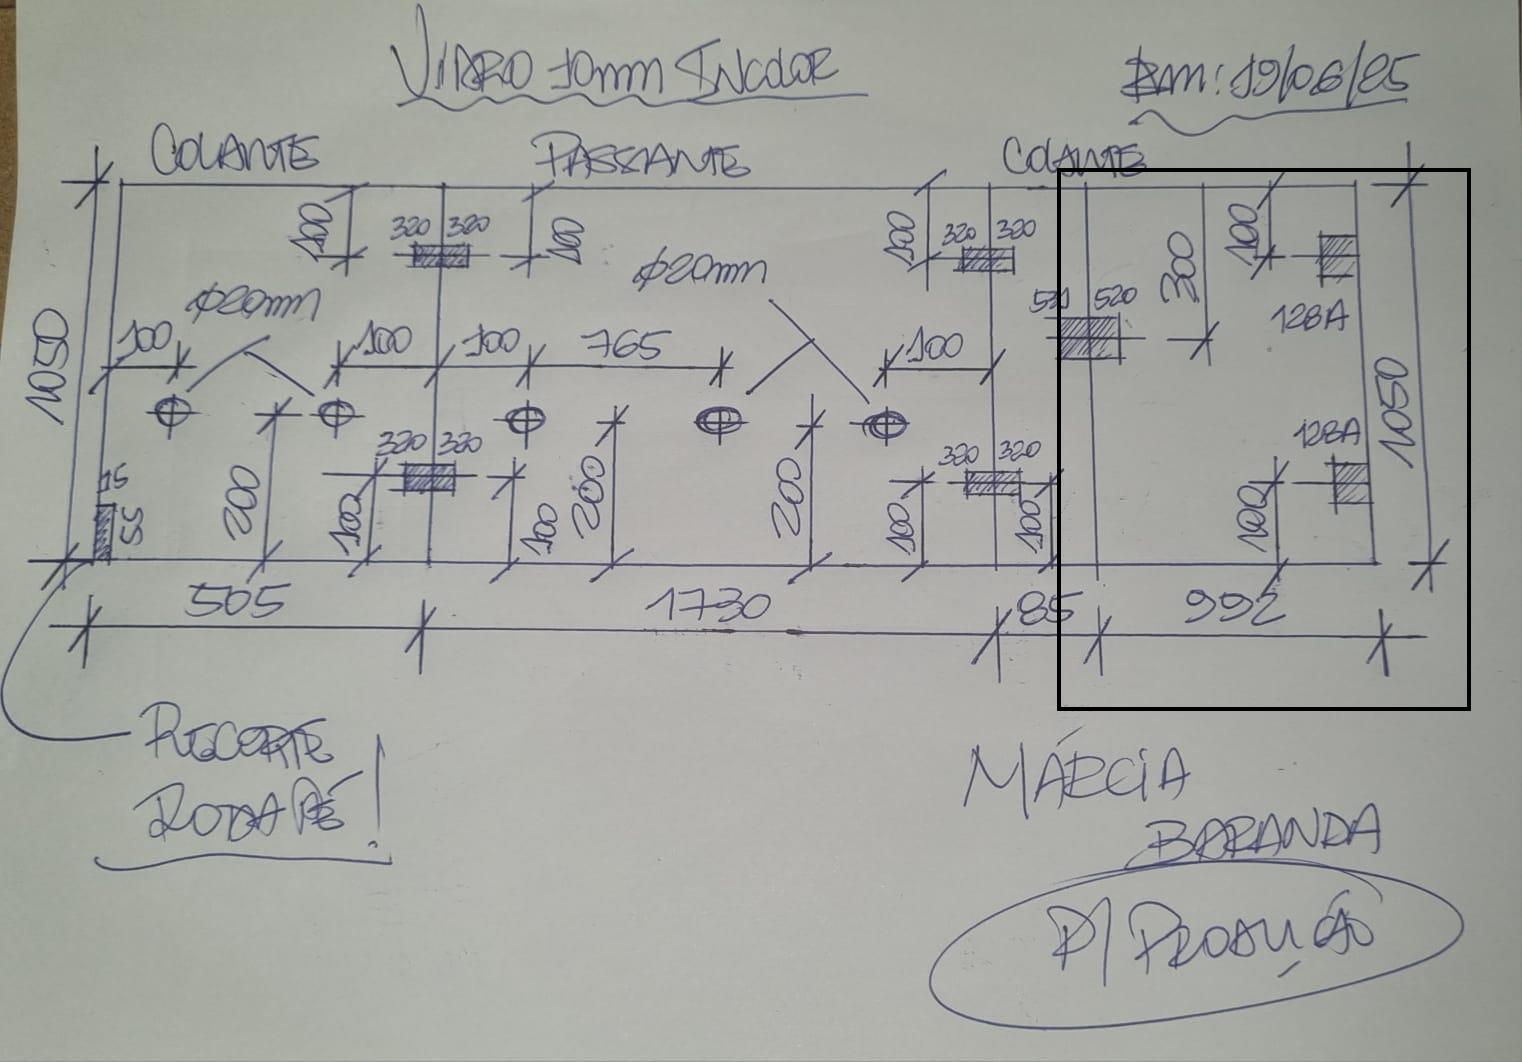 VIDRO 10mm INCOLOR
Em: 19/06/25
COLANTE PASSANTE COLANTE
100 320 320 100 100 320 320 300 100
Ø20mm Ø20mm
520 520 128A
1050 100 100 100 765 100 1050
320 320 320 320 128A
15 55 200 100 100 200 200 100 100 100
505 1730 85 992
RECORTE
RODAPÉ!
MÁRCIA
BARANDA
P/ PRODUÇÃO